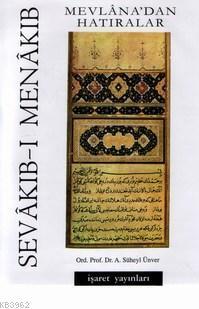 MEVLÂNA'DAN
HATIRALAR
SEVÂKIB-I MENÂKIB
Ord. Prof. Dr. A. Süheyl Ünver
işaret yayınları
KB3962